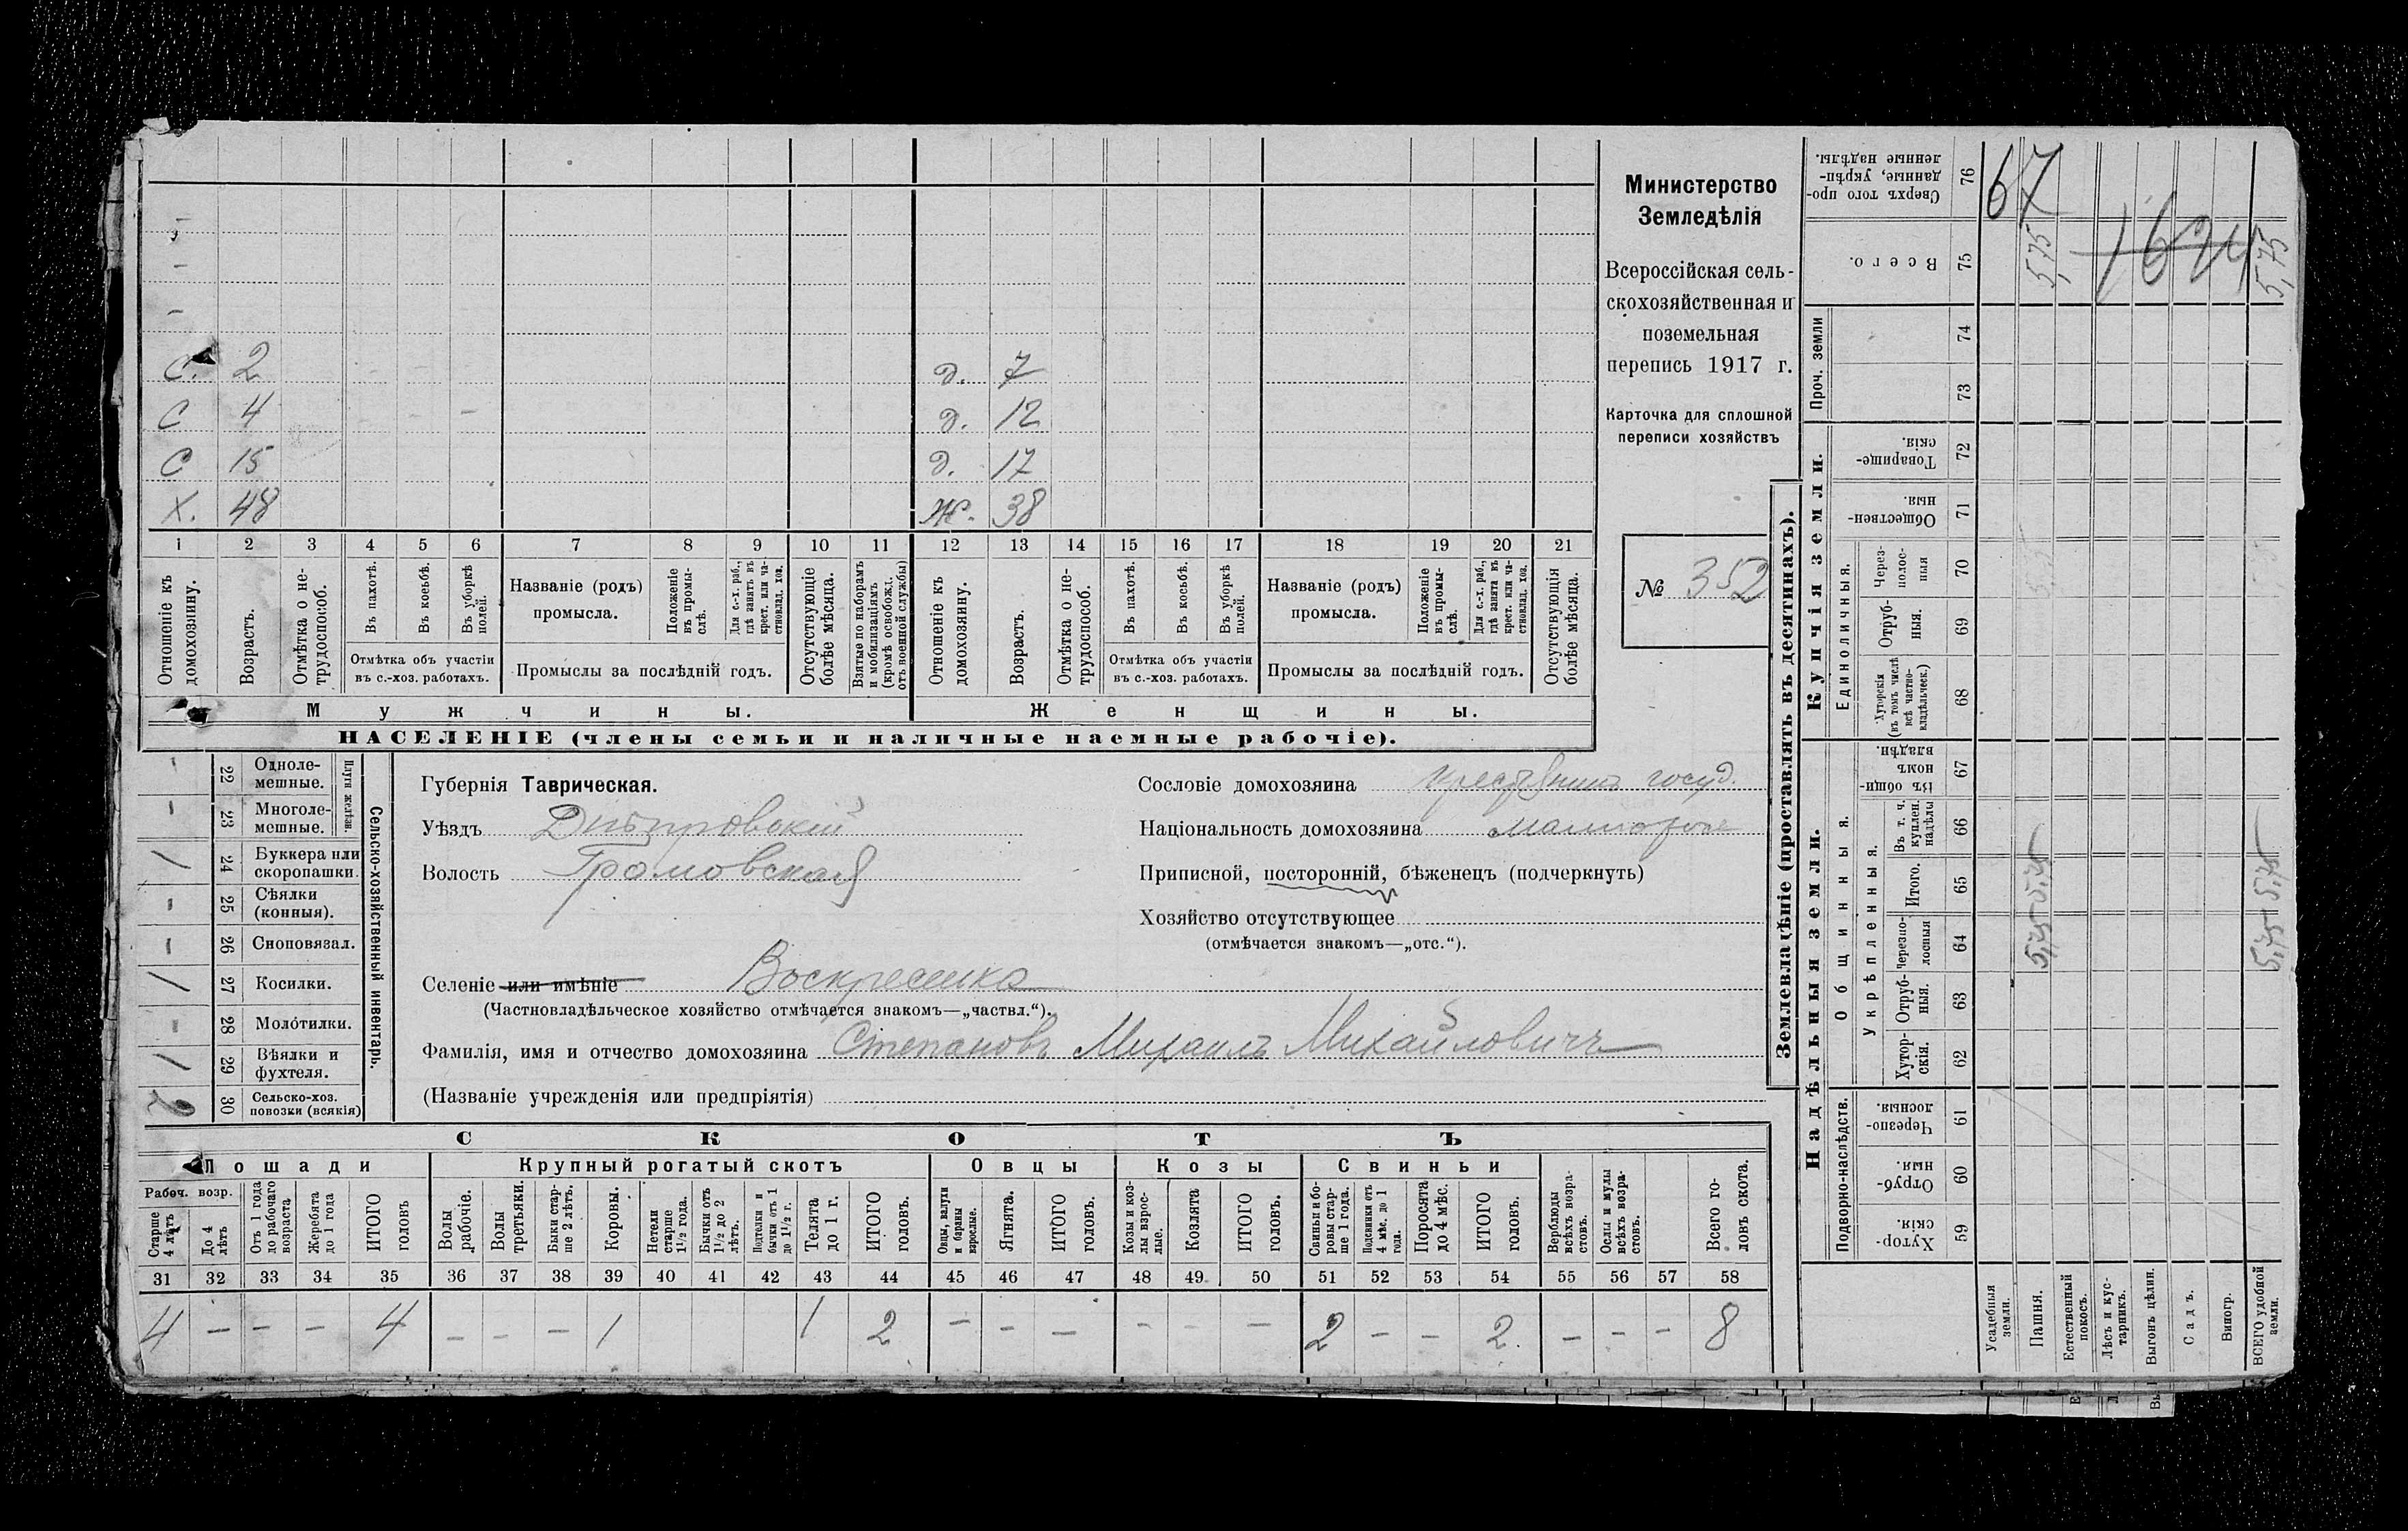 С. 2 д. 7
С 4 д. 12
С 15 д. 17
Х. 48 Ж. 38
1 2 3 4 5 6 7 8 9 10 11 12 13 14 15 16 17 18 19 20 21
Отношеніе къ домохозяину.
Возрастъ.
Отмѣтка о не-трудоспособ.
Въ пахотѣ.
Въ косьбѣ.
Въ уборкѣ полей.
Отмѣтка объ участіи
въ с.-хоз. работахъ.
Названіе (родъ)
промысла.
Положеніе въ промы-слѣ.
Для с.-х. раб., гдѣ занятъ въ крест. или ча-стновлад. хоз.
Промыслы за послѣдній годъ.
Отсутствующіе болѣе мѣсяца.
Взятые по наборамъ и мобилизаціямъ (кромѣ освобожд. отъ военной службы)
Отношеніе къ домохозяину.
Возрастъ.
Отмѣтка о не-трудоспособ.
Въ пахотѣ.
Въ косьбѣ.
Въ уборкѣ полей.
Отмѣтка объ участіи
въ с.-хоз. работахъ.
Названіе (родъ)
промысла.
Положеніе въ промы-слѣ.
Для с.-х. раб., гдѣ занята въ крест. или ча-стновлад. хоз.
Промыслы за послѣдній годъ.
Отсутствующія болѣе мѣсяца.
Мужчины.
Женщины.
НАСЕЛЕНІЕ (члены семьи и наличные наемные рабочіе).
Министерство
Земледѣлія
Всероссійская сель-
скохозяйственная и
поземельная
перепись 1917 г.
Карточка для сплошной
переписи хозяйствъ
№ 352
Сельско-хозяйственный инвентарь.
Плуги желѣзн.
– 22 Одноле-мешные.
– 23 Многоле-мешные.
1 24 Буккера или скоропашки.
– 25 Сѣялки (конныя).
– 26 Сноповязал.
1 27 Косилки.
– 28 Молотилки.
1 29 Вѣялки и фухтеля.
2 30 Сельско-хоз. повозки (всякія)
Губернія Таврическая.
Уѣздъ Днѣпровскій
Волость Громовская
Селеніе или имѣніе Воскресенка
(Частновладѣльческое хозяйство отмѣчается знакомъ—„частвл.“).
Фамилія, имя и отчество домохозяина Степановъ Михаилъ Михайловичъ
(Названіе учрежденія или предпріятія)
Сословіе домохозяина крестьянинъ госуд.
Національность домохозяина
Приписной, посторонній, бѣженецъ (подчеркнуть)
Хозяйство отсутствующее
(отмѣчается знакомъ—„отс.“).
СКОТЪ
Лошади
Крупный рогатый скотъ
Овцы
Козы
Свиньи
Рабоч. возр.
Старше 4 лѣтъ
До 4 лѣтъ
Отъ 1 года до рабочаго возраста
Жеребята до 1 года
ИТОГО головъ
Волы рабочіе.
Волы третьяки.
Быки стар-ше 2 лѣтъ.
Коровы.
Нетели старше 1½ года.
Бычки отъ 1½ до 2 лѣтъ.
Подтелки и бычки отъ 1 до 1½ г.
Телята до 1 г.
ИТОГО головъ.
Овцы, валухи и бараны взрослые.
Ягнята.
ИТОГО головъ.
Козы и коз-лы взрос-лые.
Козлята
ИТОГО головъ.
Свиньи и бо-ровы стар-ше 1 года.
Подсвинки отъ 4 мѣс. до 1 года.
Поросята до 4 мѣс.
ИТОГО головъ.
Верблюды всѣхъ возра-стовъ.
Ослы и мулы всѣхъ возра-стовъ.
Всего го-ловъ скота.
31 32 33 34 35 36 37 38 39 40 41 42 43 44 45 46 47 48 49 50 51 52 53 54 55 56 57 58
4 – – – 4 – – – 1 1 2 – – – – – – 2 – – 2. – – – 8
Землевладѣніе (проставлять въ десятинахъ).
Надѣльныя земли.
Купчія земли.
Проч. земли
Подворно-наслѣдств.
Общинныя.
Укрѣпленныя.
Единоличныя.
Сверхъ того про-данные, укрѣп-ленные надѣлы. 76
Всего. 75
74
73
Товарище-скія. 72
Обществен-ныя. 71
Через-полос-ныя 70
Отруб-ныя. 69
Хуторскія (въ томъ числѣ всѣ частно-владѣльческ.) 68
Въ общин-номъ владѣн. 67
Въ т. ч. куплен. надѣлы 66
Итого. 65
Черезпо-лосныя 64
Отруб-ныя. 63
Хутор-скія. 62
Черезпо-лосныя. 61
Отруб-ныя. 60
Хутор-скія. 59
Усадебныя земли.
Пашня.
Естественный покосъ.
Лѣсъ и кус-тарникъ.
Выгонъ цѣлин.
Садъ.
Виногр.
ВСЕГО удобной земли.
67
5,75 5,75
5,75 5,75
5,75 5,75